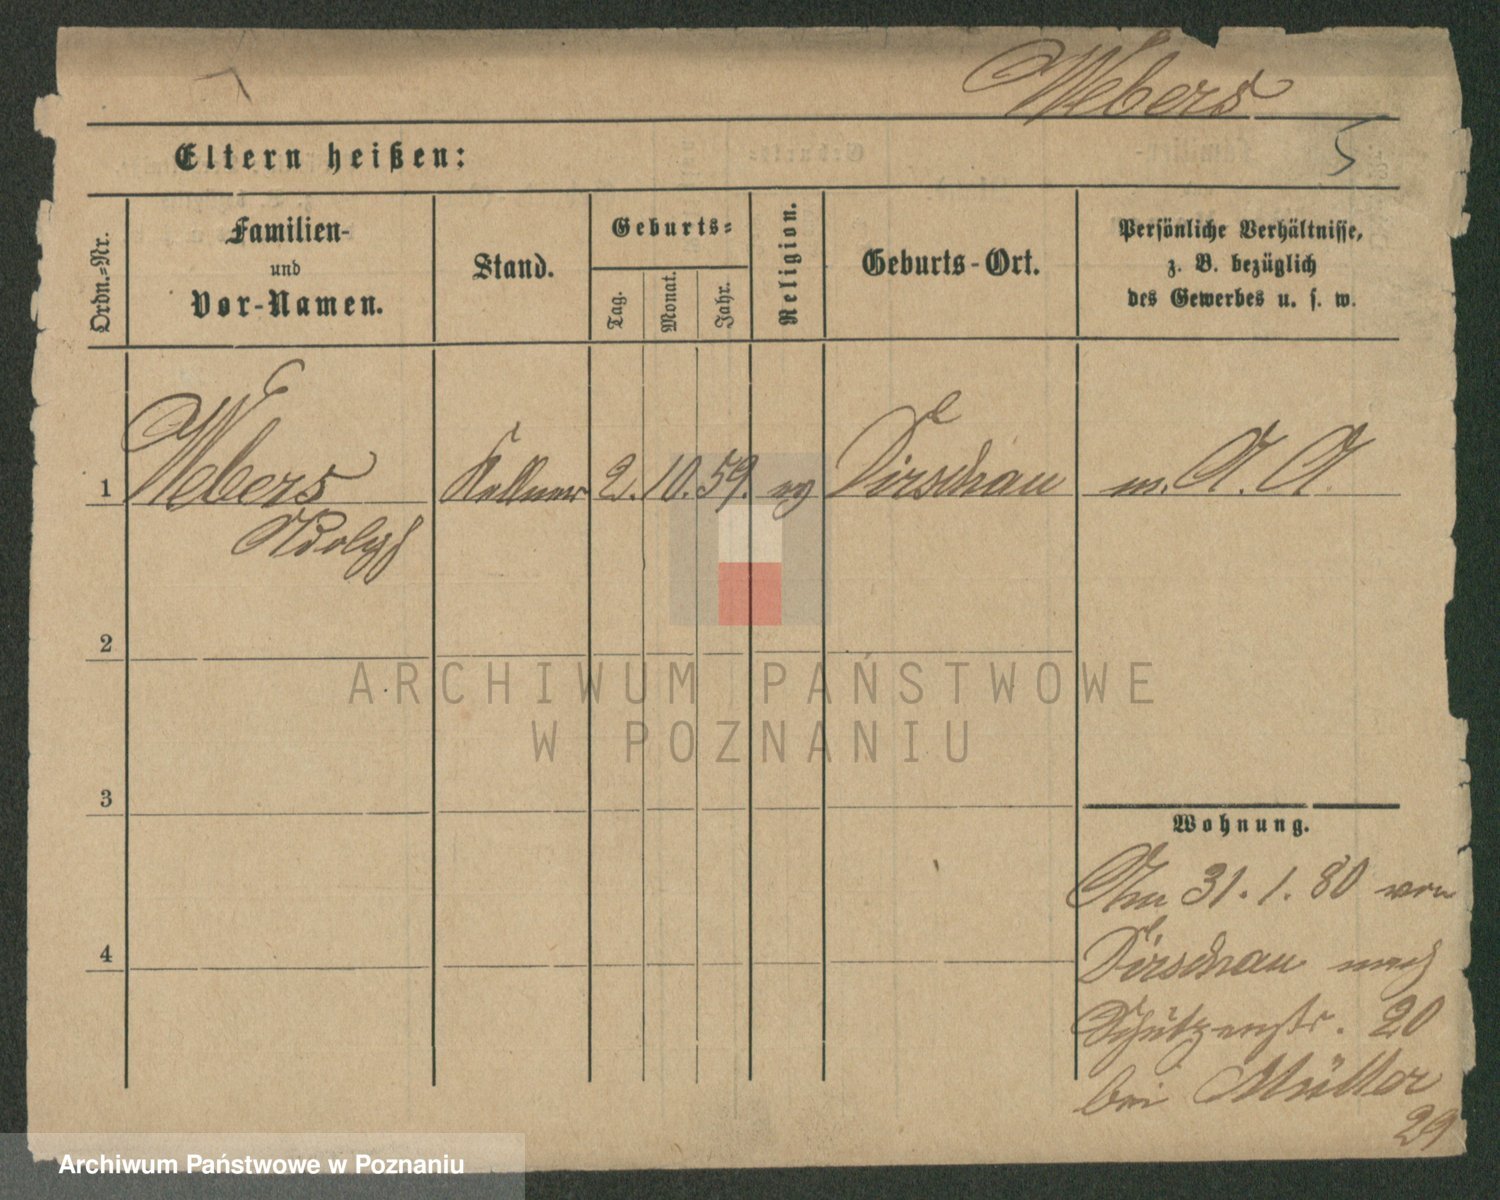 Webers
5
Eltern heißen:
Ordn.-Nr.
Familien-
und
Vor-Namen.
Stand.
Geburts-
Tag.
Monat.
Jahr.
Religion.
Geburts-Ort.
Persönliche Verhältnisse,
z. B. bezüglich
des Gewerbes u. s. w.
1 Webers Kellner 2. 10. 59. ev Dirschau m. A. A.
Adolph
2
3
4
Wohnung.
Am 31. 1. 80 von
Dirschau nach
Schützenstr. 20
bei Müller
29
ARCHIWUM PAŃSTWOWE
W POZNANIU
Archiwum Państwowe w Poznaniu